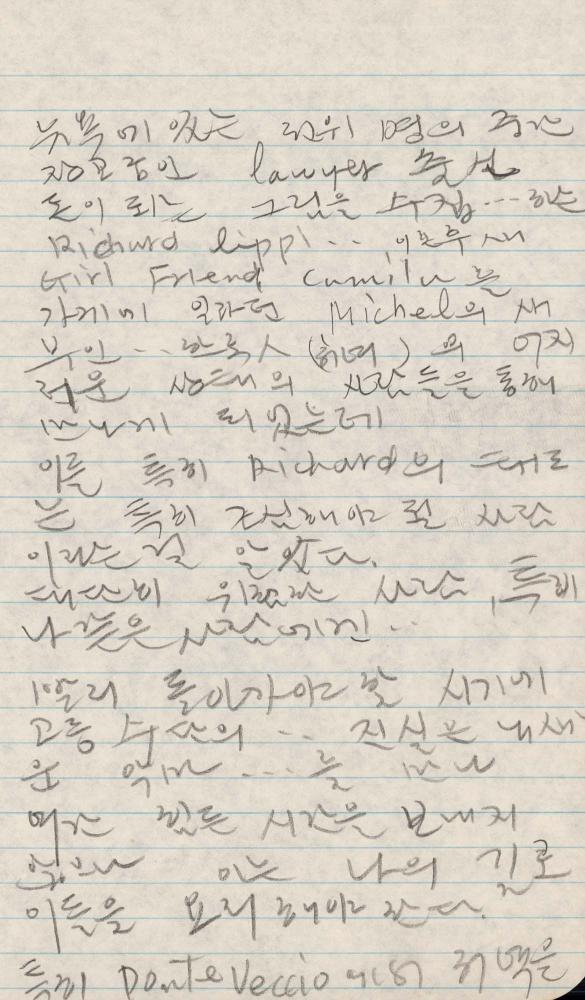 뉴욕에 있는 랭위 10명의 중간
장교 중인 lawyer 출신
돈이 되는 그림을 수집...하는
Richard lippi... 이혼후 새
Girl Friend Camila를
가게에 일하던 Michel의 새
부인...한국人 (허여)의 어지
러운 상태의 사람들을 통해
만나게 되었는데
이들 특히 Richard의 태도
는 특히 조심해야 할 사람
이라는걸 알았다.
대단히 위험한 사람, 특히
나 같은 사람에겐...
빨리 돌아가야 할 시기에
고등 수단의 ... 진실을 내세
운 악마 ...를 만나
여간 힘든 시간을 보내지
않으나 이는 나의 길로
이들을 요리해야 한다.
특히 Ponte Veccio 에서